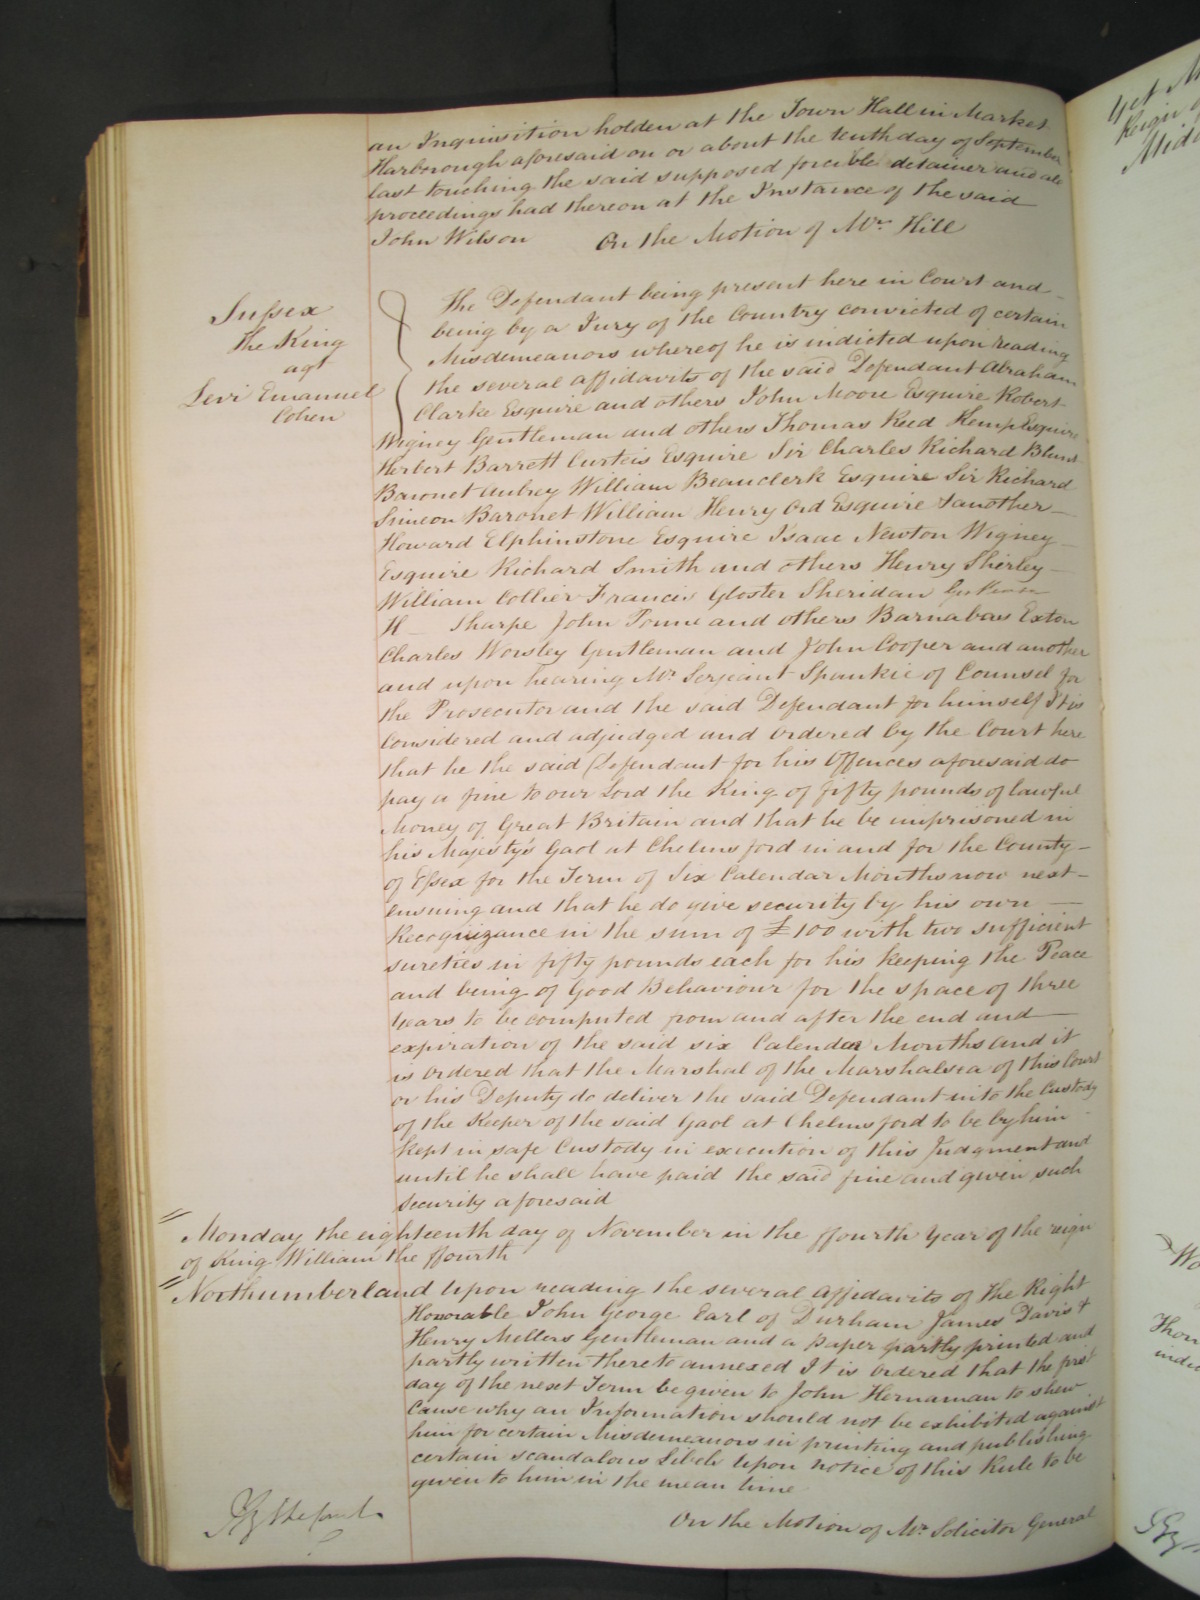 an Inquisition holden at the Town Hall in Market
Harborough aforesaid on or about the tenth day of September
last touching the said supposed forcible detainer and all
proceedings had thereon at the Instance of the said
John Wilson On the Motion of Mr. Hill
Sussex
The King
agt
Levi Emanuel
Cohen
The Defendant being present here in Court and
being by a Jury of the Country convicted of certain
Misdemeanors whereof he is indicted upon reading
the several affidavits of the said Defendant Abraham
Clarke Esquire and others John Moore Esquire Robert
Wigney Gentleman and others Thomas Reed Kemp Esquire
Herbert Barrett Curteis Esquire Sir Charles Richard Blunt
Baronet Aubrey William Beauclerk Esquire Sir Richard
Simeon Baronet William Henry Ord Esquire & another
Howard Elphinstone Esquire Isaac Newton Wigney
Esquire Richard Smith and others Henry Shirley
William Collier Francis Gloster Sheridan Gentleman
H Sharpe John and others Barnabas Exton
Charles Worsley Gentleman and John Cooper and another
and upon hearing Mr Serjeant Spankie of Counsel for
the Prosecutor and the said Defendant for himself It is
Considered and adjudged and Ordered by the Court here
that he the said Defendant for his Offences aforesaid do
pay a fine to our Lord the King of fifty pounds of lawful
Money of Great Britain and that he be imprisoned in
his Majesty's Gaol at Chelmsford in and for the County
of Essex for the Term of Six Calendar Months now next
ensuing and that he do give security by his own
Recognizance in the sum of £100 with two sufficient
sureties in fifty pounds each for his keeping the Peace
and being of Good Behaviour for the space of three
Years to be computed from and after the end and
expiration of the said six Calendar Months and it
is ordered that the Marshal of the Marshalsea of this Court
or his Deputy do deliver the said Defendant into the Custody
of the Keeper of the said Gaol at Chelmsford to be by him
kept in safe Custody in execution of this Judgment and
until he shall have paid the said fine and given such
Security aforesaid
Monday the eighteenth day of November in the ffourth Year of the reign
of King William the ffourth
Northumberland Upon reading the several affidavits of The Right
Honorable John George Earl of Durham James Davis &
Henry Mellers Gentleman and a paper partly printed and
partly written thereto annexed It is Ordered that the first
day of the next Term be given to John Hernaman to shew
Cause why an Information should not be exhibited against
him for certain Misdemeanors in printing and publishing
certain scandalous Libels Upon notice of this Rule to be
given to him in the mean time
On the Motion of Mr. Solicitor General